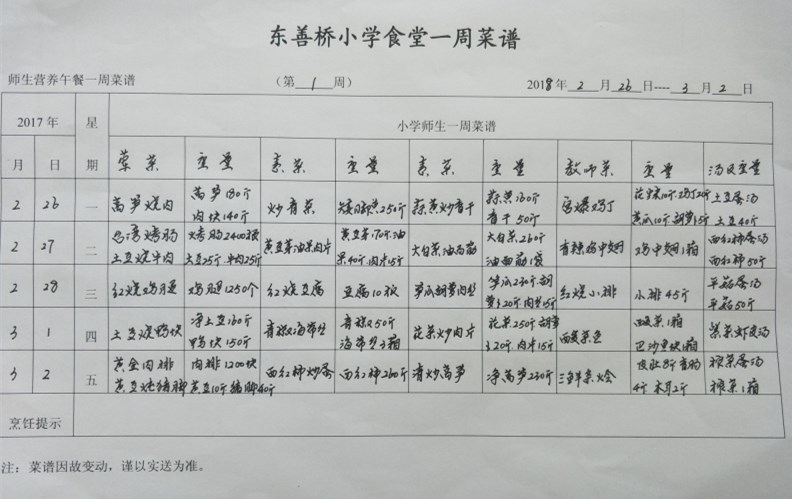 东善桥小学食堂一周菜谱
师生营养午餐一周菜谱 （第 1 周） 2018年 2 月 26 日---- 3 月 2 日
2017年 星期 小学师生一周菜谱
月 日 荤菜 重量 素菜 重量 素菜 重量 教师菜 重量 汤及重量
2 26 一 莴笋烧肉 莴笋180斤 肉块140斤 炒青菜 矮脚黄250斤 蒜黄炒香干 蒜黄160斤 香干50斤 宫爆鸡丁 花生米10斤 鸡丁20斤 黄瓜10斤 胡萝卜5斤 土豆蛋汤 土豆40斤
2 27 二 台湾烤肠 土豆烧牛肉 烤肠2400根 土豆25斤 牛肉25斤 黄豆芽油果肉片 黄豆芽170斤 油果40斤 肉片15斤 大白菜油面筋 大白菜260斤 油面筋 袋 香辣鸡中翅 鸡中翅1箱 西红柿蛋汤 西红柿50斤
2 28 三 红烧鸡腿 鸡腿1250个 红烧豆腐 豆腐10板 笋瓜胡萝肉丝 笋瓜230斤 胡萝卜20斤 肉丝15斤 红烧小排 小排45斤 平菇蛋汤 平菇50斤
3 1 四 土豆烧鸭块 净土豆160斤 鸭块150斤 青椒海带丝 青椒50斤 海带丝 箱 花菜炒肉片 花菜250斤 胡萝卜20斤 肉片15斤 酸菜鱼 酸菜1箱 巴沙鱼块1箱 紫菜虾皮汤
3 2 五 黄金肉排 黄豆炖猪脚 肉排1200块 黄豆10斤 猪脚40斤 西红柿炒蛋 西红柿260斤 清炒莴笋 净莴笋230斤 三鲜杂烩 皮肚8斤 香肠4斤 木耳2斤 榨菜蛋汤 榨菜1箱
烹饪提示
注：菜谱因故变动，谨以实送为准。